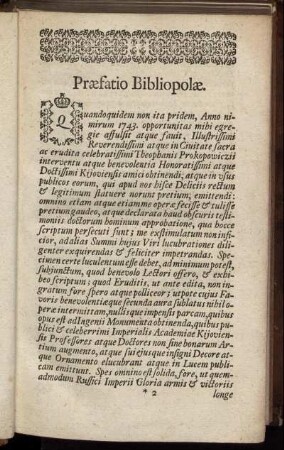 Præfatio Bibliopolæ.
Quandoquidem non ita pridem, Anno ni-
mirum 1743. opportunitas mihi egre-
gie affulsit atque favit, Illustrissimi
Reverendissimi atque in Civitate sacra
ac erudita celebratissimi Theophanis Prokopowiczii
interventu atque benevolentia Honoratissimi atque
Doctissimi Kijoviensis amici obtinendi; atque in usus
publicos eorum, qui apud nos hisce Deliciis rectum
& legitimum statuere norunt pretium, emittendi:
omnino etiam atque etiam me operæ fecisse & tulisse
pretium gaudeo, atque declarata haud obscuris testi-
moniis doctorum hominum approbatione, qua hocce
scriptum persecuti sunt; me exstimulatum non infi-
cior, ad alias Summi hujus Viri lucubrationes dili-
genter exquirendas & feliciter impetrandas. Spe-
cimen certe luculentum esse debet, ad minimum potest,
subjunctum, quod benevolo Lectori offero, & exhi-
beo scriptum; quod Eruditis, ut ante edita, non in-
gratum fore spero atque polliceor; utpote cujus Fa-
voris benevolentiæque secunda aura sublatus nihil o-
peræ intermittam, nullisque impensis parcam, quibus
opus est ad Ingenii Monumenta obtinenda, quibus pu-
blici & celeberrimi Imperialis Academiæ Kijovien-
sis Professores atque Doctores non sine bonarum Ar-
tium augmento, atque sui ejusque insigni Decore at-
que Ornamento elucubrant atque in Lucem publi-
cam emittunt. Spes omnino est solida, fore, ut quem-
admodum Russici Imperii Gloria armis & victoriis
* 2 longe